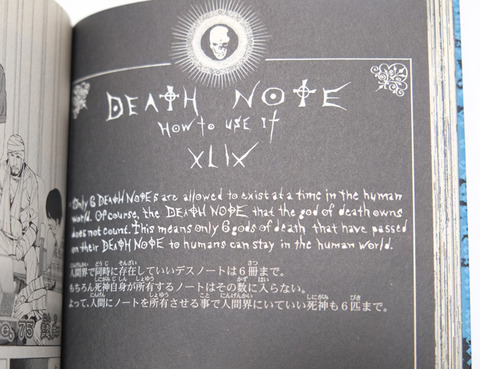 DEATH NOTE
HOW TO USE IT
XLIX
Only 6 DEATH NOTEs are allowed to exist at a time in the human
world. Of course, the DEATH NOTE that the god of death owns
does not count. This means only 6 gods of death that have passed
on their DEATH NOTE to humans can stay in the human world.
人間界で同時に存在していいデスノートは6冊まで。
もちろん死神自身が所有するノートはその数に入らない。
よって、人間にノートを所有させる事で人間界にいていい死神も6匹まで。